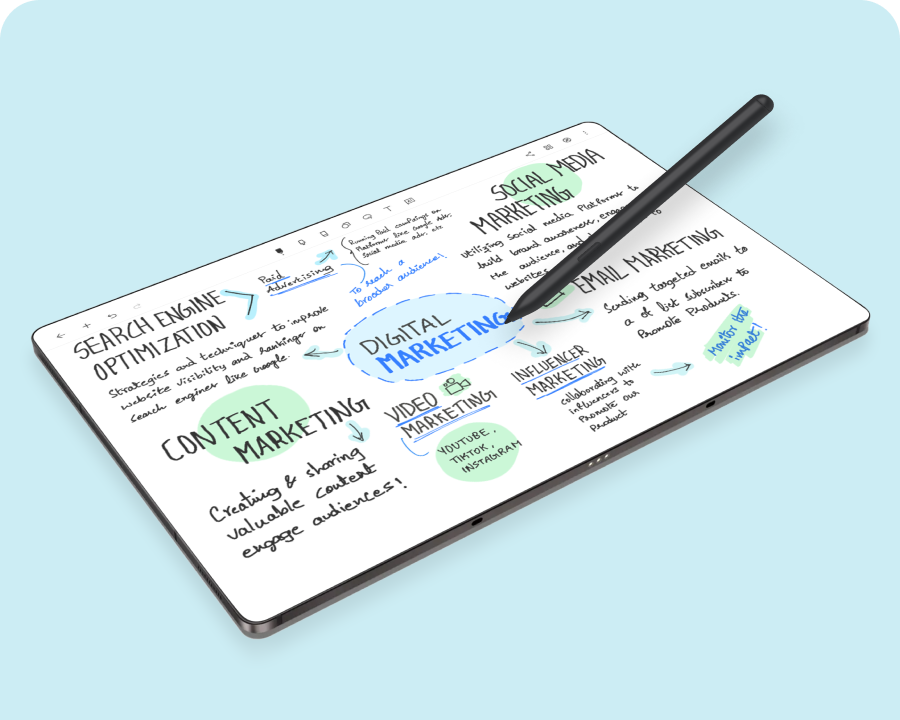 SOCIAL MEDIA
MARKETING
Utilizing social media Platforms to
build brand awareness, engage
the audience, and
websites.
Running Paid campaigns on
Platforms like google Ads,
Social media ads, etc
Paid
Advertising
To reach a
broader audience!
EMAIL MARKETING
Sending targeted emails to
a of list subscribers to
Promote Products.
SEARCH ENGINE
OPTIMIZATION
Strategies and techniques to improve
website visibility and rankings on
search engines like Google.
DIGITAL
MARKETING
Monitor the
impact!
INFLUENCER
MARKETING
collaborating with
influencers to
Promote our
Product
CONTENT
MARKETING
VIDEO
MARKETING
YOUTUBE,
TIKTOK,
INSTAGRAM
Creating & sharing
valuable content
engage audiences!